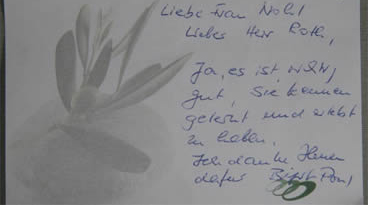 Liebe Frau Nohl
Lieber Herr Roth,
Ja, es ist
gut, Sie kennen
gelernt und erlebt
zu haben.
Ich danke Ihnen
dafür Birgit